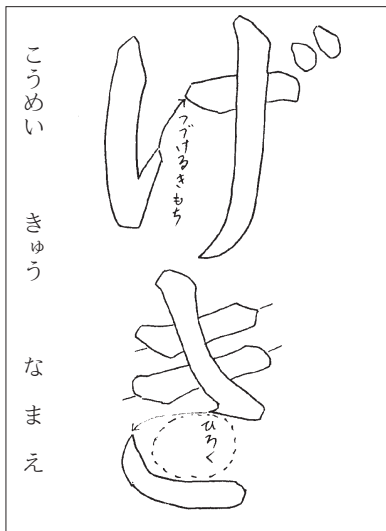 げき
つづけるきもち
ひろく
こうめい　きゅう　なまえ